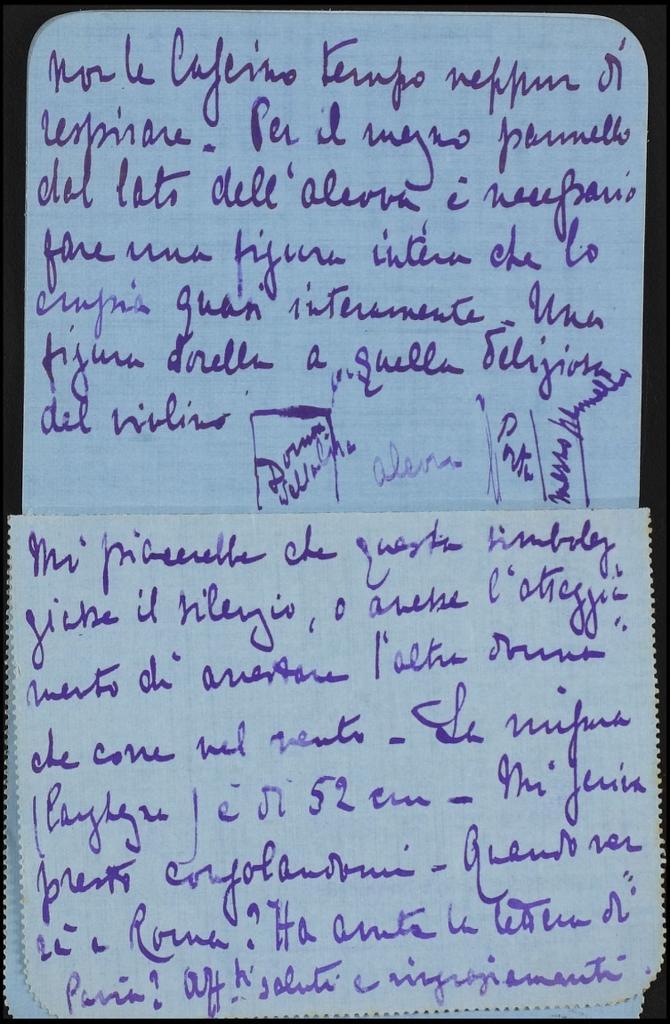 non le lascino tempo neppur di
respirare. Per il mezzo pannello
dal lato dell'alcova, è necessario
fare una figura intera che lo
empia quasi interamente - Una
figura sorella a quella deliziosa
del violino
Donna
della lira
alcova
Porta
mezzo pannello
Mi piacerebbe che questa simboleg
giasse il silenzio, o avesse l'atteggia
mento di arrestare l'altra donna
che corre nel vento - La misura
(larghezza) è di 52 cm - Mi scriva
presto consolandomi - Quando ver
rà a Roma? Ha avuta la lettera di
Pavia? Aff.ti saluti e ringraziamenti.